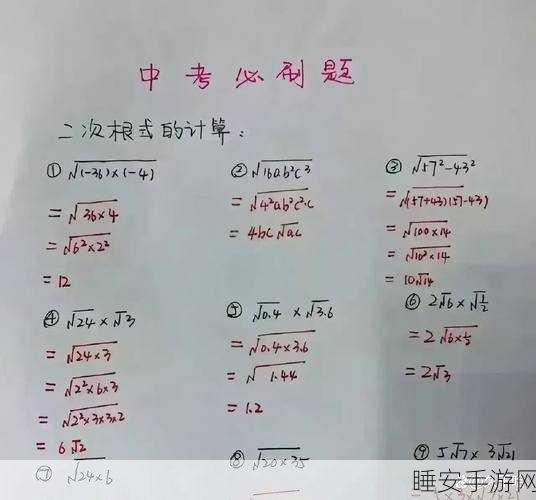 中考必刷题
二次根式的计算：
① √(-36)×(-4)
= √36×4
= √6²×2²
= 12
② √16ab²c³
= √4²ab²c²·c
= 4bc√ac
③ √57²-43²
= √(57+43)(57-43)
= √100×14
= √10²×14
= 10√14
④ √24 × √3
= √24×3
= √2²×6×3
= √2²×3×3×2
= 6√2
⑤ √0.4 × √3.6
= √0.4×3.6
= √1.44
= 1.2
⑥ 2√6 × √1/2
= 2√6×½
= 2√3
⑦ √24×6
⑧ √20×35
⑨ 5√7 × 3√21
睡安手游网